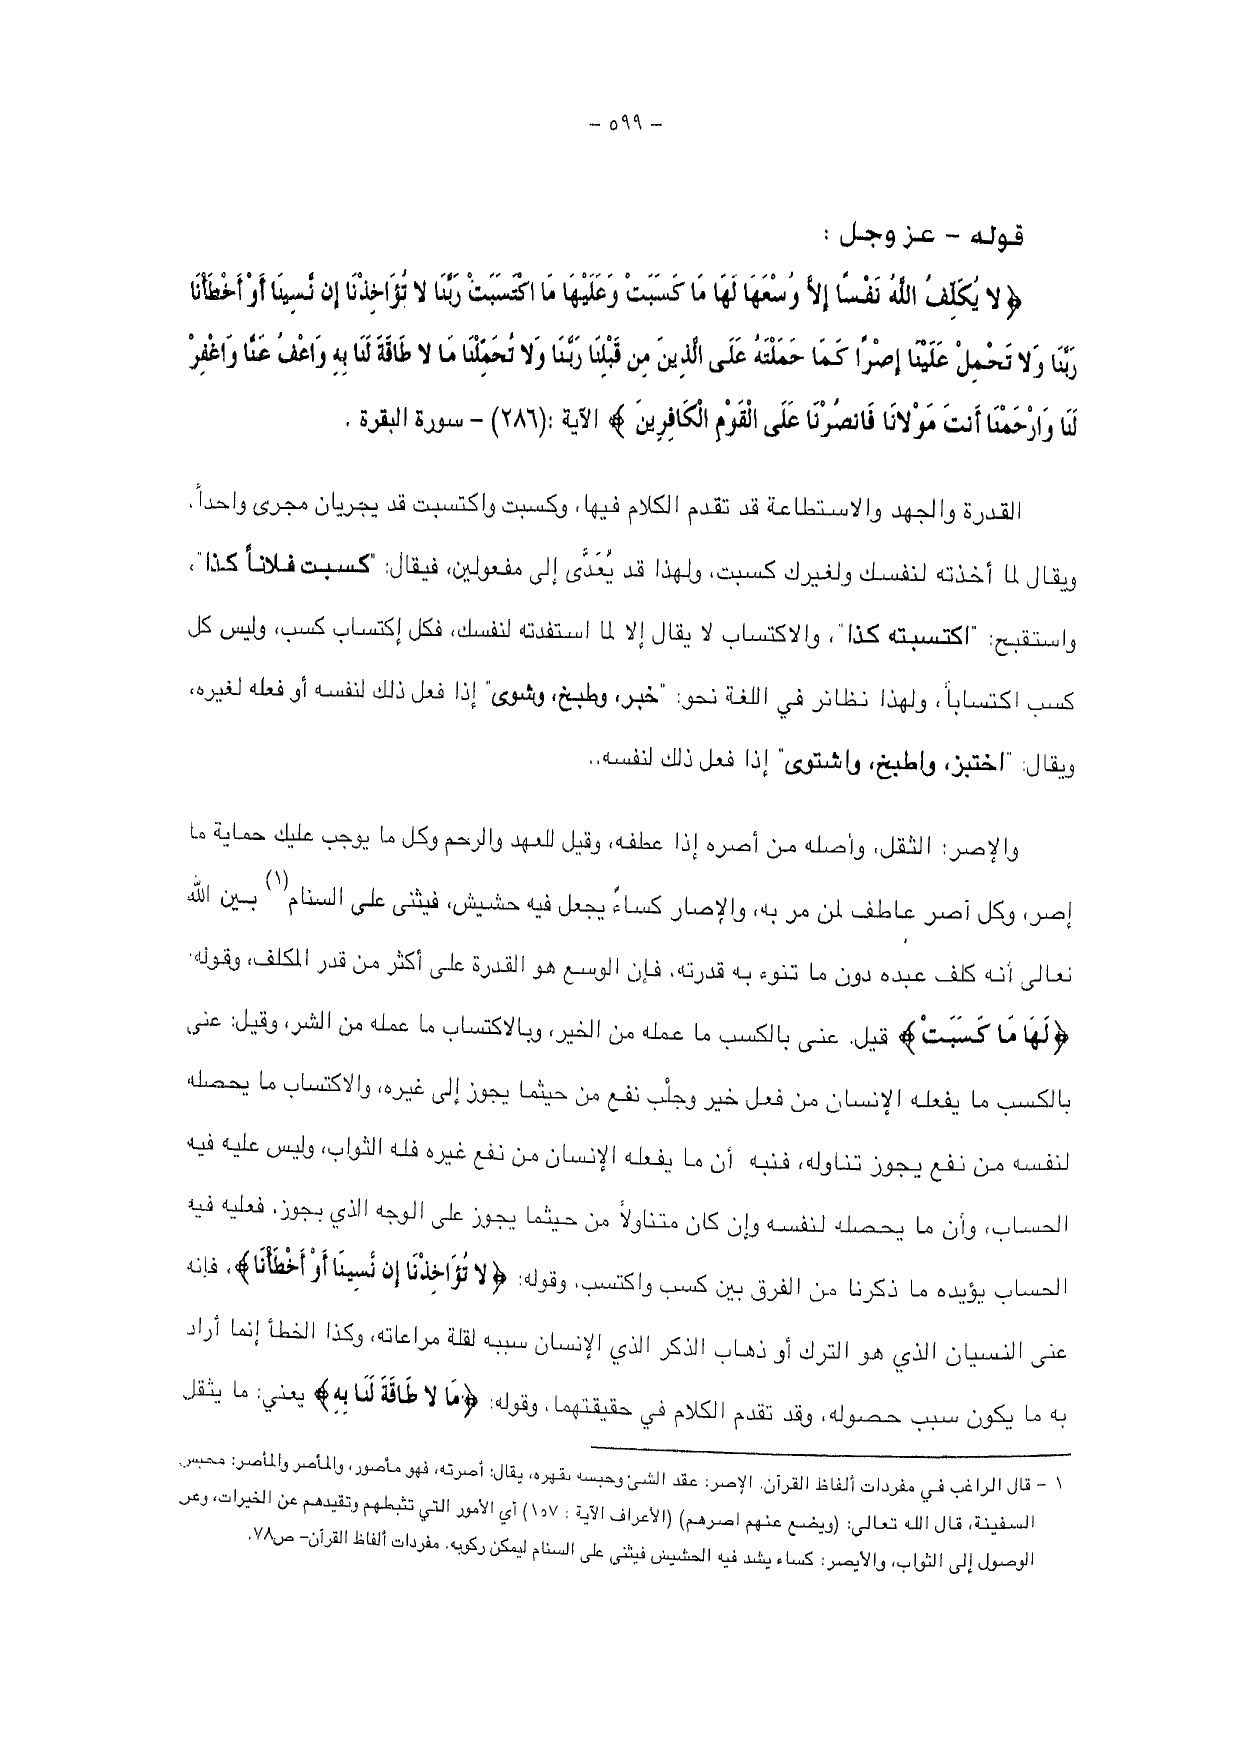 - ٥٩٩ -
قوله - عز وجل :
﴿ لا يُكَلِّفُ اللَّهُ نَفْسًا إِلاَّ وُسْعَهَا لَهَا مَا كَسَبَتْ وَعَلَيْهَا مَا اكْتَسَبَتْ رَبَّنَا لا تُؤَاخِذْنَا إِن نَّسِينَا أَوْ أَخْطَأْنَا
رَبَّنَا وَلا تَحْمِلْ عَلَيْنَا إِصْرًا كَمَا حَمَلْتَهُ عَلَى الَّذِينَ مِن قَبْلِنَا رَبَّنَا وَلا تُحَمِّلْنَا مَا لا طَاقَةَ لَنَا بِهِ وَاعْفُ عَنَّا وَاغْفِرْ
لَنَا وَارْحَمْنَا أَنتَ مَوْلانَا فَانصُرْنَا عَلَى الْقَوْمِ الْكَافِرِينَ ﴾ الآية :(٢٨٦) – سورة البقرة .
القدرة والجهد والاستطاعة قد تقدم الكلام فيها، وكسبت واكتسبت قد يجريان مجرى واحداً.
ويقال لما أخذته لنفسك ولغيرك كسبت، ولهذا قد يُعَدَّى إلى مفعولين، فيقال: "كسبت فلاناً كذا"،
واستقبح: "اكتسبته كذا"، والاكتساب لا يقال إلا لما استفدته لنفسك، فكل إكتساب كسب، وليس كل
كسب اكتساباً، ولهذا نظائر في اللغة نحو: "خبر، وطبخ، وشوى" إذا فعل ذلك لنفسه أو فعله لغيره،
ويقال: "اختبز، واطبخ، واشتوى" إذا فعل ذلك لنفسه..
والإصر: الثقل، وأصله من أصره إذا عطفه، وقيل للعهد والرحم وكل ما يوجب عليك حماية ما
إصر، وكل آصر عاطف لمن مر به، والإصار كساءً يجعل فيه حشيش، فيثنى على السنام(١) بين الله
تعالى أنه كلف عبده دون ما تنوء به قدرته، فإن الوسع هو القدرة على أكثر من قدر المكلف، وقوله:
﴿لَهَا مَا كَسَبَتْ﴾ قيل. عنى بالكسب ما عمله من الخير، وبالاكتساب ما عمله من الشر، وقيل: عنى
بالكسب ما يفعله الإنسان من فعل خير وجلْب نفع من حيثما يجوز إلى غيره، والاكتساب ما يحصله
لنفسه من نفع يجوز تناوله، فنبه أن ما يفعله الإنسان من نفع غيره فله الثواب، وليس عليه فيه
الحساب، وأن ما يحصله لنفسه وإن كان متناولاً من حيثما يجوز على الوجه الذي يجوز. فعليه فيه
الحساب يؤيده ما ذكرنا من الفرق بين كسب واكتسب، وقوله: ﴿لا تُؤَاخِذْنَا إِن نَّسِينَا أَوْ أَخْطَأْنَا﴾، فإنه
عنى النسيان الذي هو الترك أو ذهاب الذكر الذي الإنسان سببه لقلة مراعاته، وكذا الخطأ إنما أراد
به ما يكون سبب حصوله، وقد تقدم الكلام في حقيقتهما، وقوله: ﴿مَا لا طَاقَةَ لَنَا بِهِ﴾ يعني: ما يثقل
١ - قال الراغب في مفردات ألفاظ القرآن. الإصر: عقد الشئ وحبسه بقهره، يقال: أصرته، فهو مأصور، والمأصر والمأصر: محبس
السفينة، قال الله تعالى: (ويضع عنهم اصرهم) (الأعراف الآية : ١٥٧) أي الأمور التي تثبطهم وتقيدهم عن الخيرات، وعن
الوصول إلى الثواب، والأيصر: كساء يشد فيه الحشيش فيثنى على السنام ليمكن ركوبه. مفردات ألفاظ القرآن- ص٧٨.